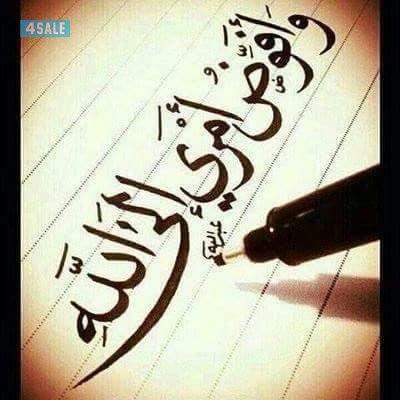 4SALE
وَأُفَوِّضُ أَمْرِي إِلَى اللَّهِ